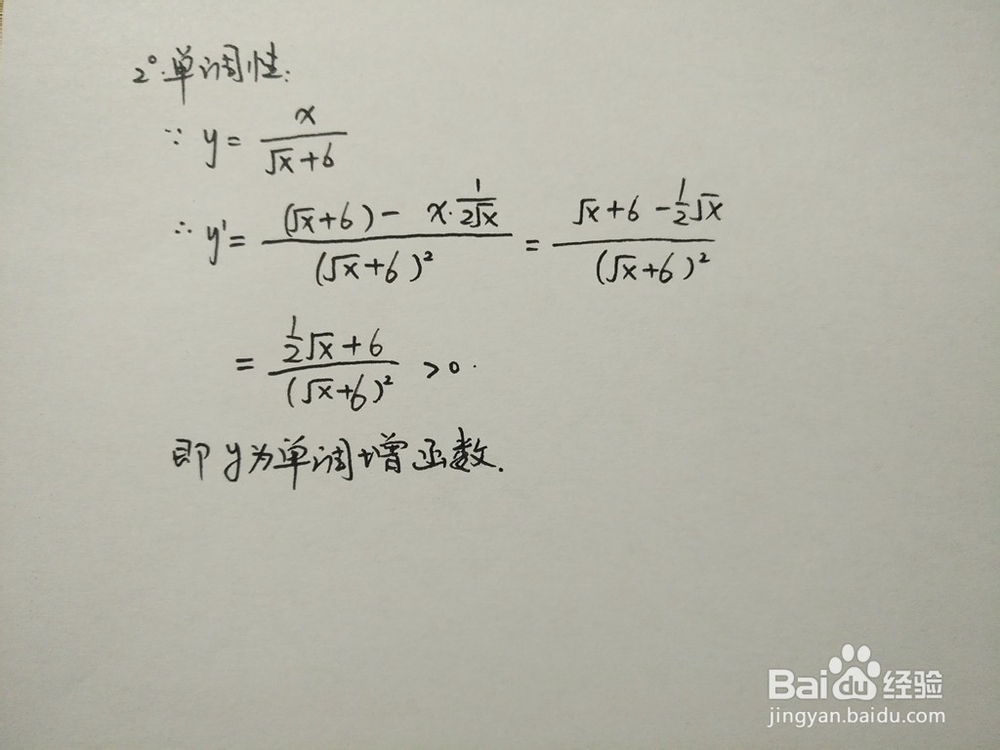 2°.单调性:
∵ y = x/(√x+6)
∴ y' = ((√x+6) - x·1/(2√x))/(√x+6)² = (√x+6-½√x)/(√x+6)²
= (½√x+6)/(√x+6)² >0.
即y为单调增函数.
Bai du 经验
jingyan.baidu.com